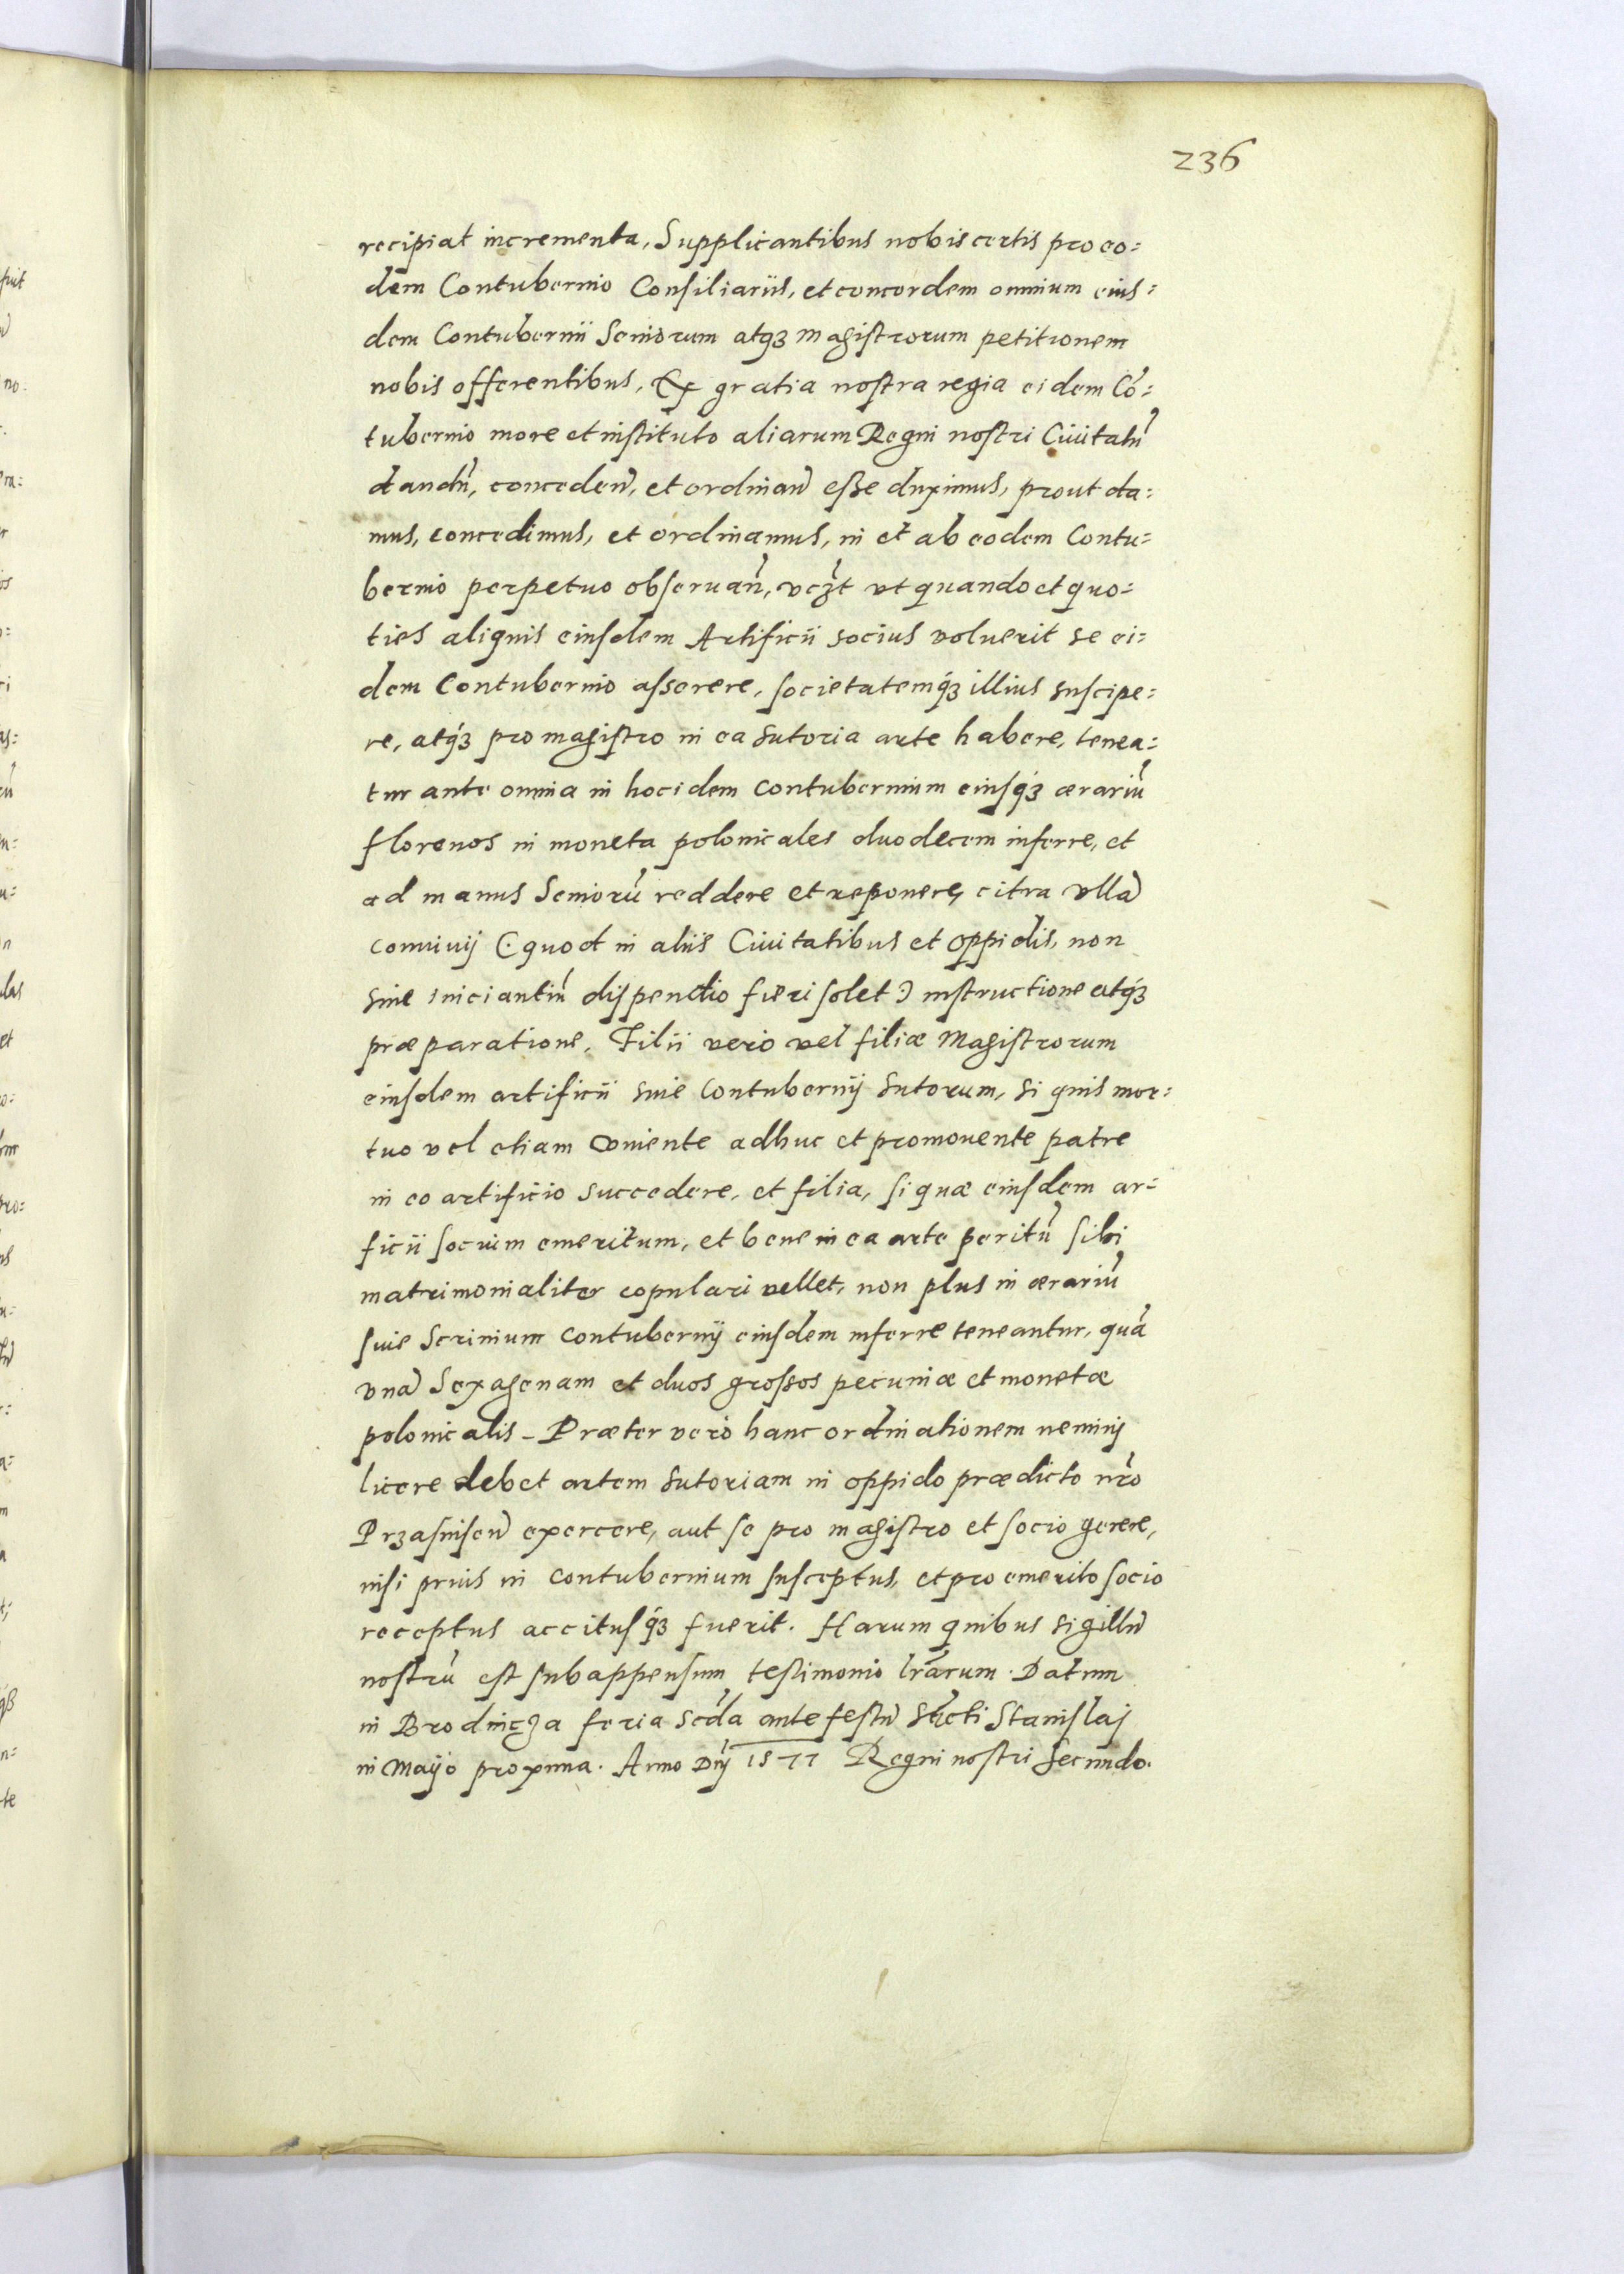 236
recipiat incrementa, Supplicantibus nobis certis pro eo=
dem Contubernio Consiliariis, et concordem omnium eius=
dem Contubernii Seniorum atqз magistrorum petitionem
nobis offerentibus, Ex gratia nostra regia eidem Cō=
tubernio more et instituto aliarum Regni nostri Ciuitatū
dandū, conceden̄, et ordinan̄ esse duximus, prout da=
mus, concedimus, et ordinamus, in et ab eodem Contu=
bernio perpetuo obseruan̄, vcзt vt quando et quo=
ties aliquis eiusdem Artificii socius voluerit se ei=
dem Contubernio asserere, societatemqз illius suscipe=
re, atqз pro magistro in ea sutoria arte habere, tenea=
tur ante omnia in hoc idem contubernium eiusqз ærariū
florenos in moneta polonicales duodecem inferre, et
ad manus Seniorū reddere et reponere, citra vllā
conuiuij (: quod in aliis Ciuitatibus et oppidis, non
sine iniciantiū dispendio fieri solet :) instructione atqз
præparatione, Filii vero vel filiæ Magistrorum
eiusdem artificii siue contubernij sutorum, si quis mor=
tuo vel etiam viuente adhuc et promouente patre
in eo artificio succedere, et filia, si quæ eiusdem ar=
ficii socium emeritum, et bene in ea arte peritū sibi
matrimonialiter copulari vellet, non plus in ærariū
siue Scrinium contubernij eiusdem inferre teneantur, quā
vnā Sexagenam et duos grossos pecuniæ et monetæ
polonicalis – Præter vero hanc ordinationem neminj
licere debet artem sutoriam in oppido prædicto nr̄o
Prзasnisen̄ exercere, aut se pro magistro et socio gerere,
nisi prius in contubernium susceptus, et pro emerito socio
receptus accitusqз fuerit. Harum quibus sigillū
nostrū est subappensum testimonio lr̄arum. Datum
in Brodnicзa feria scd̄a ante festū Sācti Stanislaj
in Maijo proxima. Anno Dn̄j 1577 Regni nostri secundo.